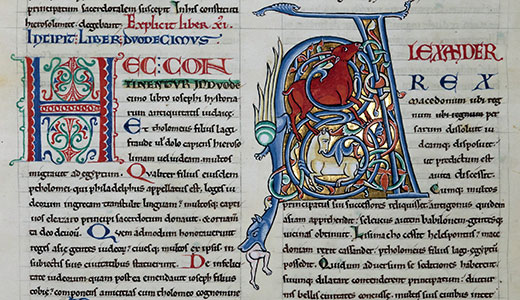 principatum sacerdotalem suscepit
hierosolimit degebant. Explicit liber .xi.
Incipit: Liber Duodecimus
HEC: CON
TINENTUR IN DUODE
cimo libro iosephi hystoria
rum antiquitatis iudaice.
Et tholomeus filius lagi
fraude & dolo capiens hieroso
limam ueliudeam multos
migrare ad egyptum. Qualiter filius eiusdem
ptholomei qui philadelphus appellatus est, leges iu
deorum ingrecam transtulit linguam? multosq; capti
uos eleazaro principi sacerdotum donauit, & ornam
ta deo dicauit. Quem admodum honorauerunt
reges asie gentes iudeoru? & ciues,
subiectis suis ciuitatibus statuerunt. De infelici
tate iudeorum quam postea emendauit ioseph filius
tobie, componens amicitias cum tholomeo cognomine
ALEXANDER
REX
macedonum ubi reg
num
persarum dissoluit iu
deamq; disposuit,
ut predictum est
uita discessit.
Cumq; multos
principatus sui successores reliquisset, antigonus quidem
asiam apprehendit, seleucus autem babilonem & gentesq;
uicinas obtinuit. Lisimacho cessit hellespontus? mace
doniam retinet cassander. Ptholomeus filius lagi egyptum
possedit. Quidam aduersum se seditiones haberent
simulq; dilatare contenderent principatum? diuturnis
bellis ciuitates concisse,